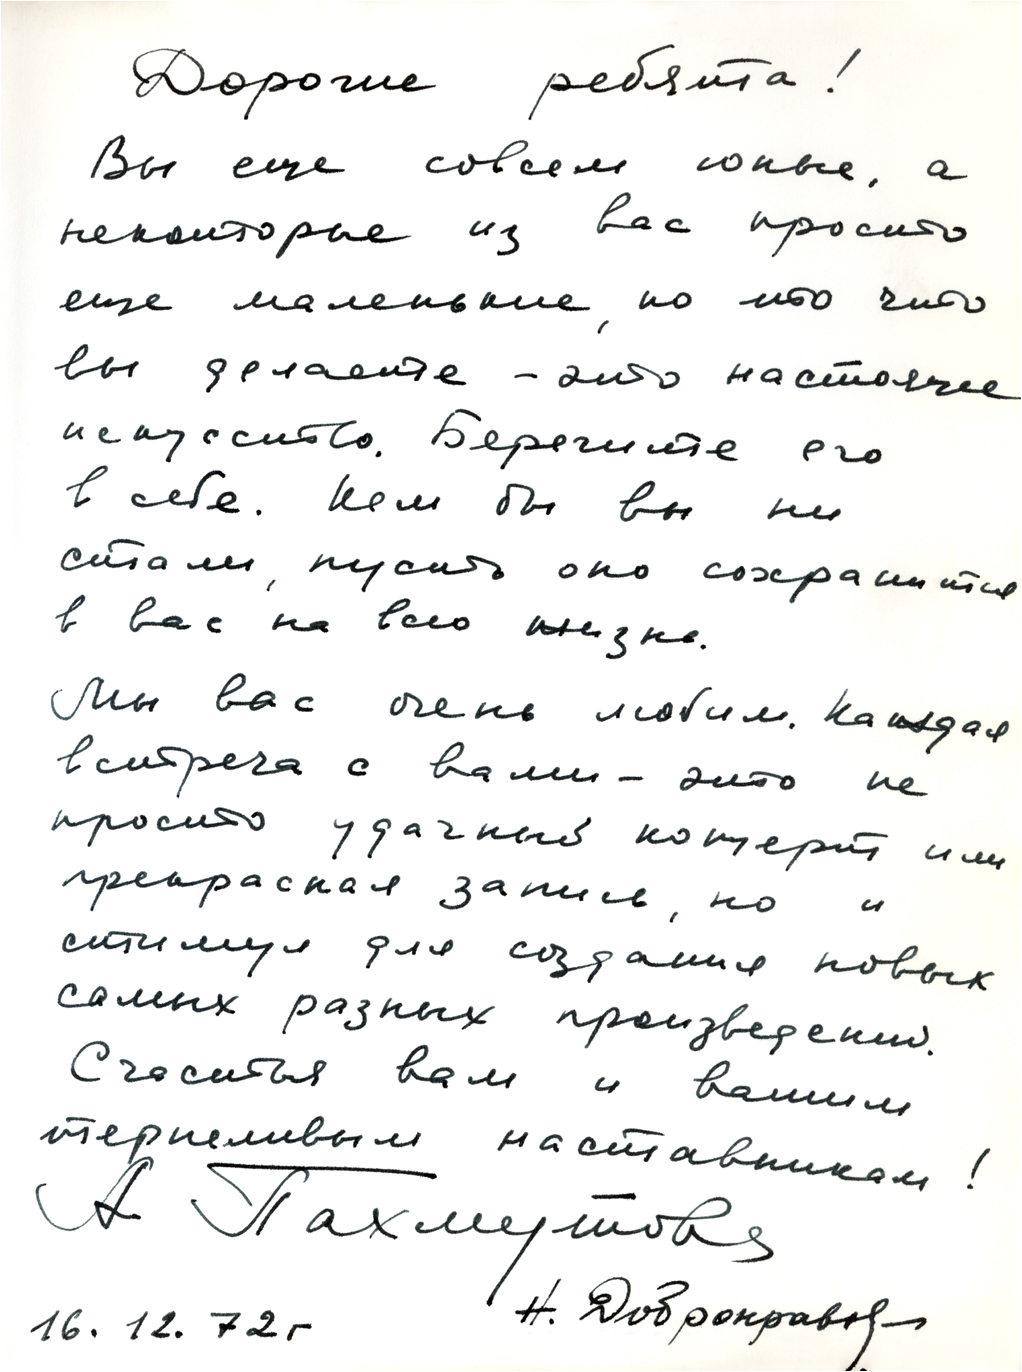 Дорогие ребята!
Вы еще совсем юные, а
некоторые из вас просто
еще маленькие, но то что
вы делаете – это настоящее
искусство. Берегите его
в себе. Кем бы вы ни
стали, пусть оно сохранится
в вас на всю жизнь.
Мы вас очень любим. Каждая
встреча с вами – это не
просто удачный концерт или
прекрасная запись, но и
стимул для создания новых
самых разных произведений.
Счастья вам и вашим
терпеливым наставникам!
А Пахмутова
Н. Добронравов
16. 12. 72 г